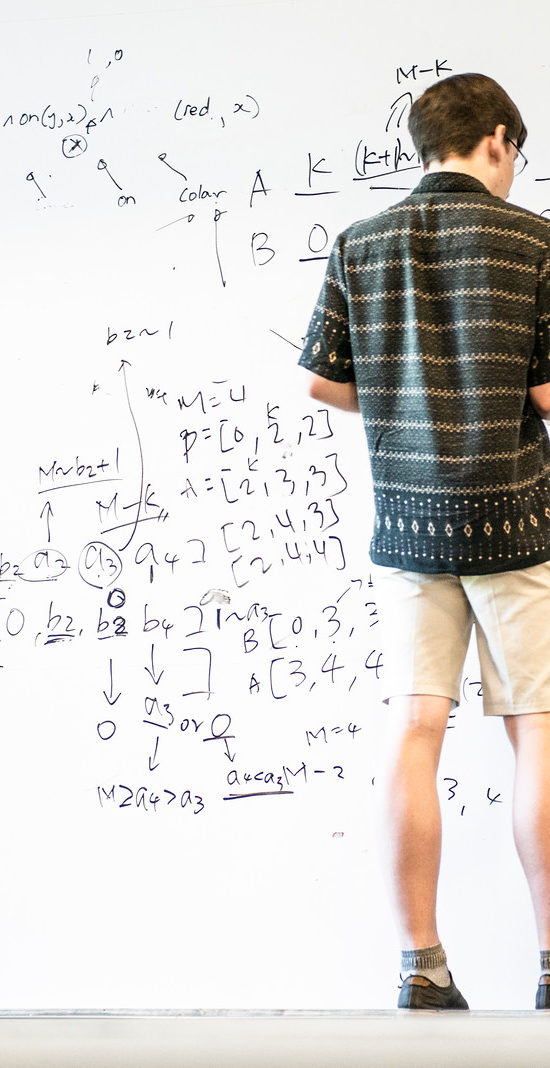 1, 0
∧ on(y,x) ∧
(red, x)
M-K
(x)
on
color
A K (k+1)
B 0
b2~1
M=4
p=[0, 2, 2]
K
M~b2+1
K
A=[2, 3, 3]
M-K
[2, 4, 3]
b2 a2 a3 a4 ]
[2, 4, 4]
[0, b2, b3 b4 ] 1~a3
B [0, 3,
A [3, 4, 4
0 a3 or 0
M=4
M≥a4>a3 a4<a3 M-2
3, 4